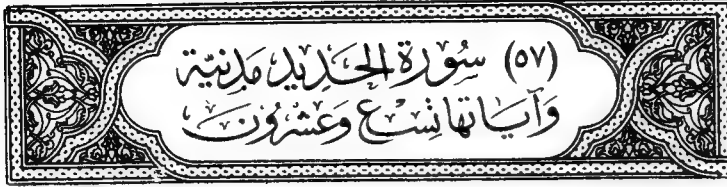 (٥٧) سُورَة الحَدِيد مَدنِيَّة
وَآيَاتها تِسْع وَعشْرُونَ